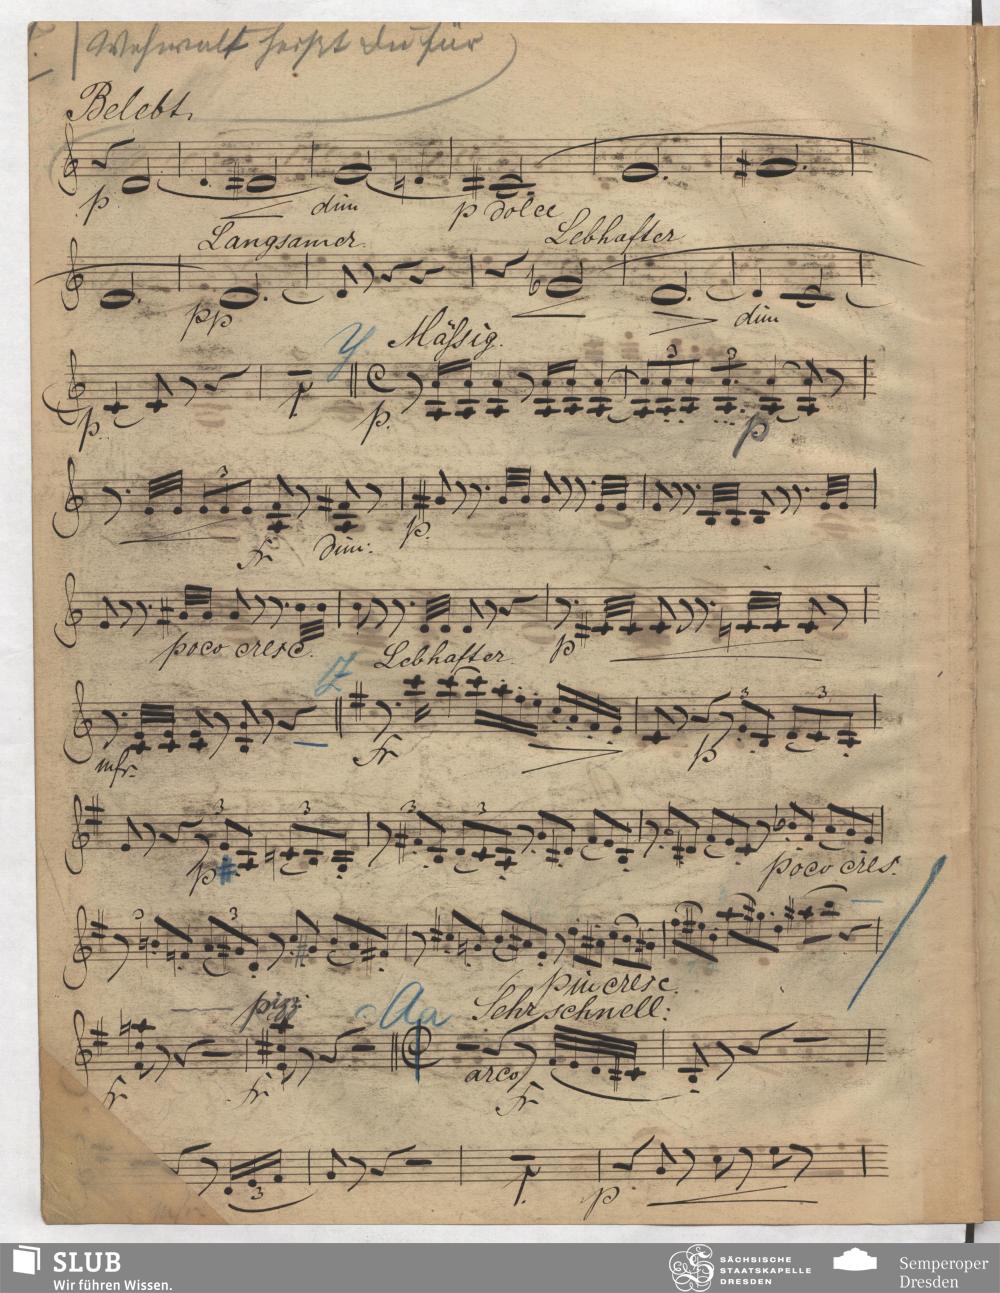 Wehwalt heißt du für
Belebt.
p dim p dolce
Langsamer. Lebhafter.
pp dim
y Mäßig.
p. p. 3 3 p
3
fr dim: p.
poco cresc. p
Z Lebhafter.
mfr. fr p 3 3
3 3 3 3
p # poco cres.
3 3
più cresc.
pizz. Aa Sehr schnell:
fr fr arco fr
3 1. p
SLUB
Wir führen Wissen.
SÄCHSISCHE
STAATSKAPELLE
DRESDEN
Semperoper
Dresden